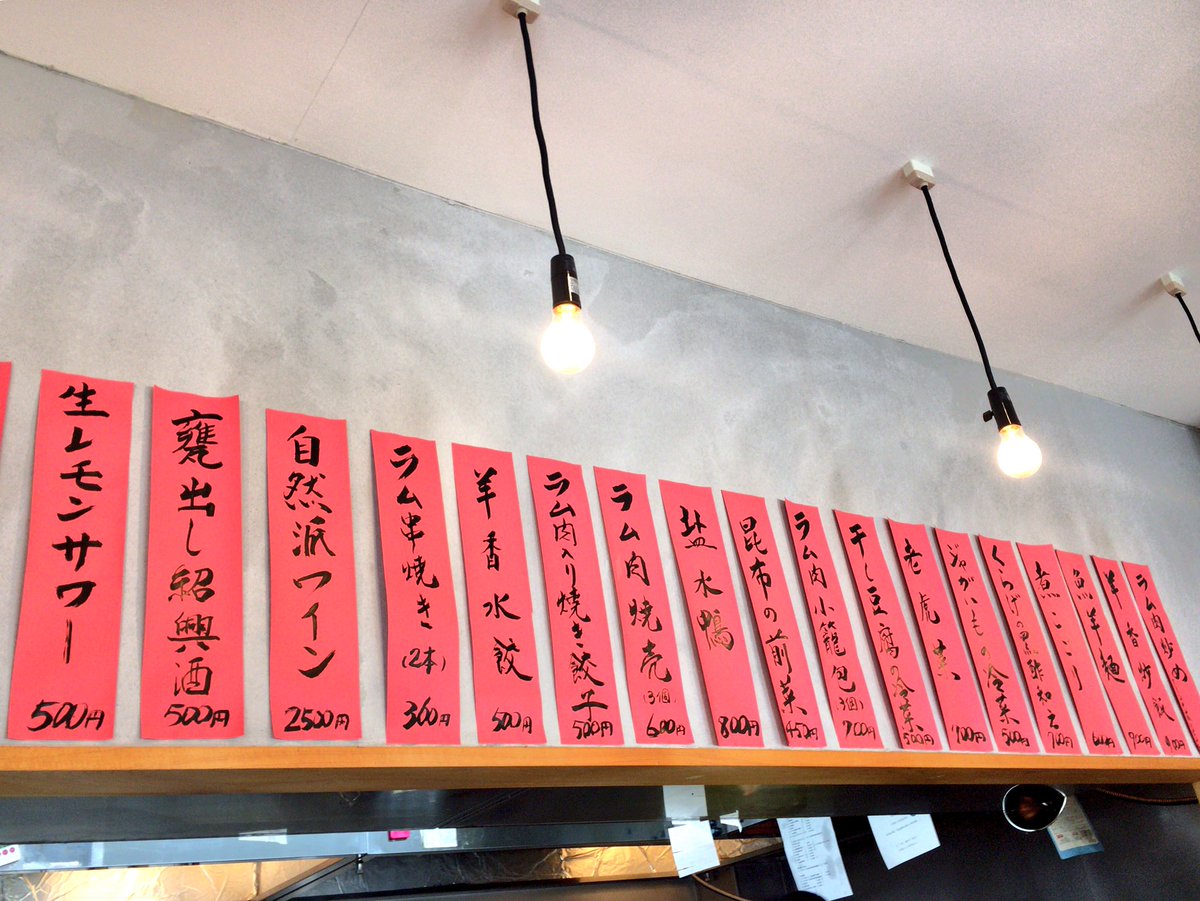 生レモンサワー
500円
甕出し紹興酒
500円
自然派ワイン
2500円
ラム串焼き
(2本)
360円
羊香水餃
500円
ラム肉入り焼き餃子
500円
ラム肉焼売
(3個)
600円
盐水鴨
800円
昆布の前菜
450円
ラム肉小籠包
(3個)
700円
干し豆腐の冷菜
500円
老虎菜
700円
じゃがいもの冷菜
500円
くらげの黒酢和え
700円
煮こごり
600円
魚羊麺
900円
羊香炒飯
ラム肉炒め